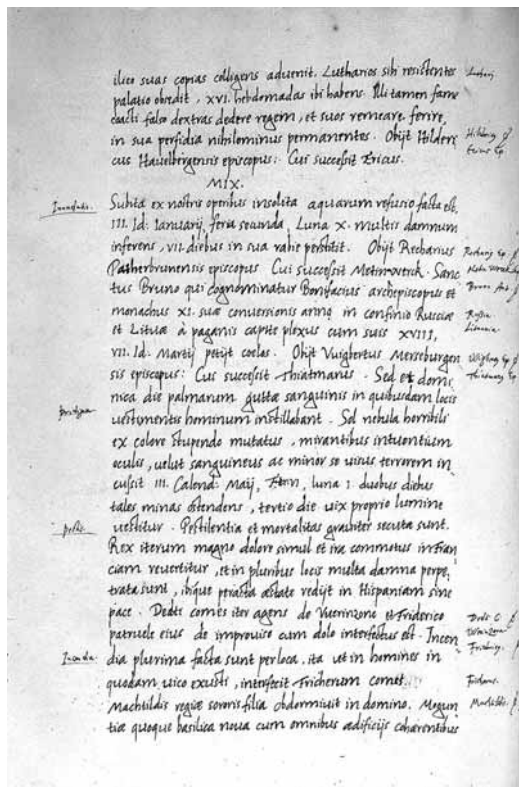 ilico suas copias colligens aduenit. Lutharios sibi resistentes
palatio obsedit, XVI. hebdomadas ibi habens. Illi tamen fame
coacti falso dextras dedere regem, et suos remeare. ferire,
in sua perfidia nihilominus permanentes. Obijt Hilderi
cus Hauelbergensis episcopus: Cui successit Ericus.
MIX.
Inundatio.
Subita ex nostris operibus insolita aquarum refusio facta est,
III. Id: Ianuarij, feria secunda, Luna X. multis damnum
inferens, VII. diebus in sua rabie perstitit. Obijt Recharius
Patherbrunensis episcopus Cui successit Meinwerck. Sanc
tus Bruno qui cognominatur Bonifacius archepiscopus et
monachus XI. suae conuersionis anno in confinio Rusciae
et Lituae à paganis capite plexus cum suis XVIII,
VII. Id. Martij petijt coelos. Obijt Vuigbertus Merseburgen
sis episcopus: Cui successit Thiatmarus. Sed et domi
nica die palmarum guttae sanguinis in quibusdam locis
uestimentis hominum instillabant. Sol nebula horribili
ex colore stupendo mutatus, mirantibus intuentium
oculis, uelut sanguineus ac minor se uisus terrorem in
cussit III. Calend: Maij, luna I. duobus diebus
tales minas ostendens, tertio die uix proprio lumine
uestitur. Pestilentia et mortalitas grauiter secuta sunt.
Pestis.
Rex iterum magno dolore simul et ira commotus in Fran
ciam reuertitur, et in pluribus locis multa damna perpe,
trata sunt, ibique peracta aestate redijt in Hispaniam sine
pace. Dedis comes iter agens de Vuerinzone et Friderico
patruele eius de improuiso cum dolo interfectus est. Incen
Incendia.
dia plurima facta sunt per loca, ita ut in homines in
quodam uico exusti, interfecit Fricherum comet.
Machtildis regiae sororis filia obdormiuit in domino. Mogun
tiae quoque basilica noua cum omnibus aedificijs cohaerentibus
Russia
Lituania.